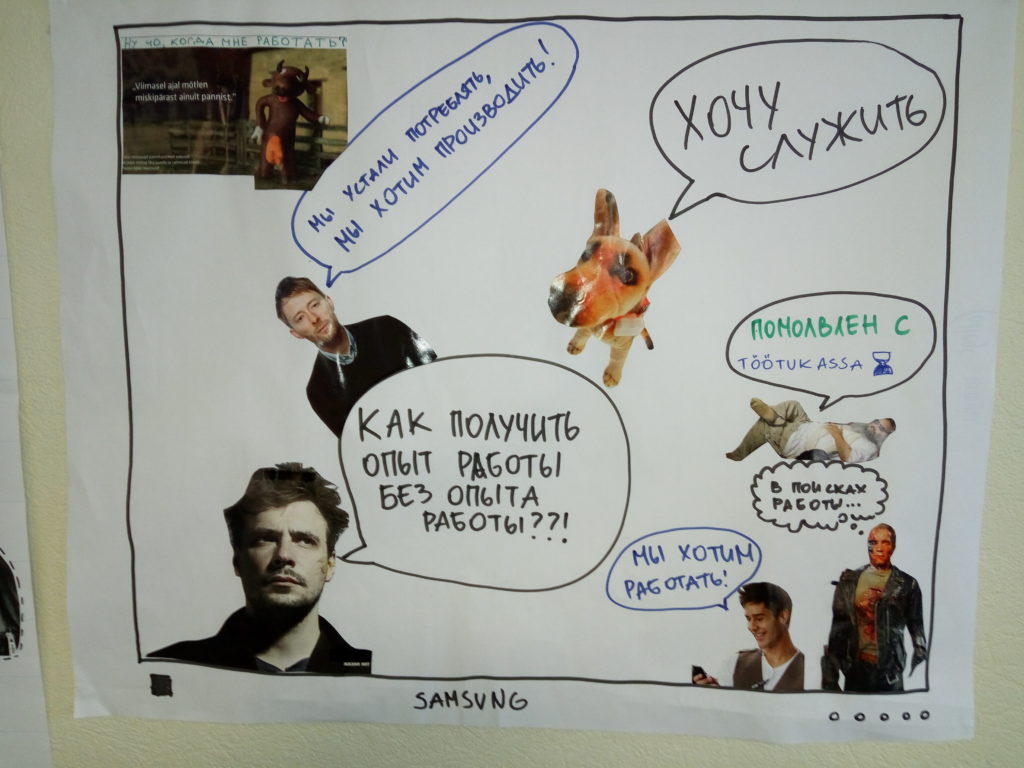 НУ ЧО, КОГДА МНЕ РАБОТАТЬ?
„Viimasel ajal mõtlen
miskipärast ainult pannist."
МЫ УСТАЛИ ПОТРЕБЛЯТЬ,
МЫ ХОТИМ ПРОИЗВОДИТЬ!
ХОЧУ
СЛУЖИТЬ
ПОМОЛВЛЕН С
TÖÖTUKASSA
КАК ПОЛУЧИТЬ
ОПЫТ РАБОТЫ
БЕЗ ОПЫТА
РАБОТЫ??!
В ПОИСКАХ
РАБОТЫ...
МЫ ХОТИМ
РАБОТАТЬ!
SAMSUNG